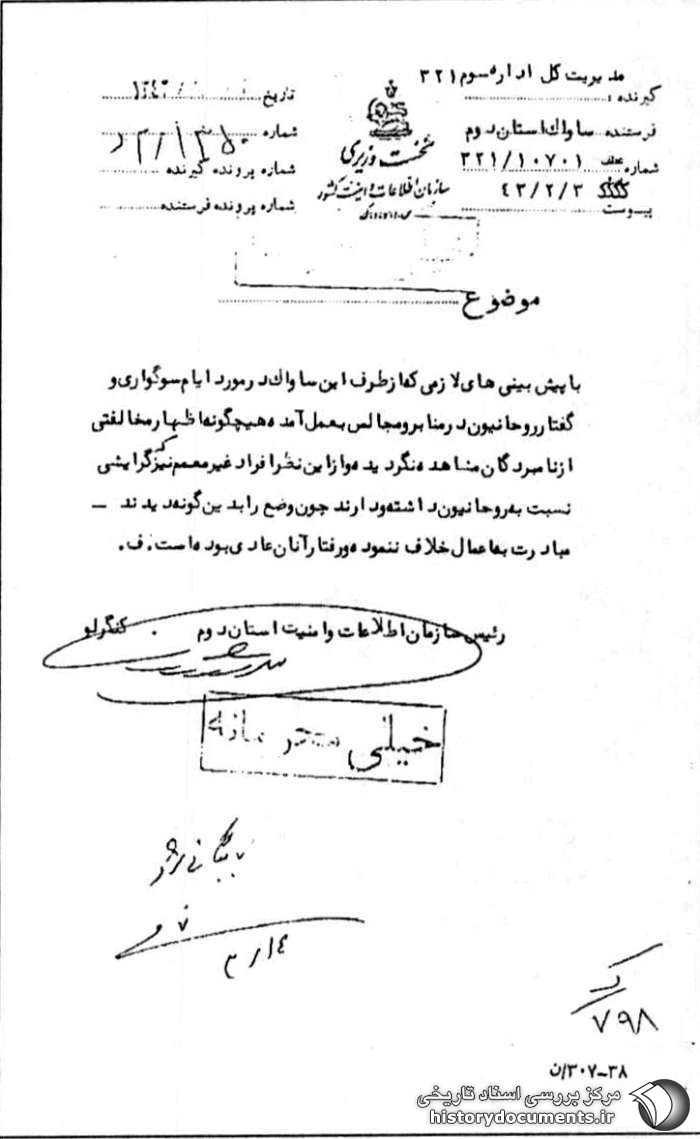 مدیریت کل اداره سوم ۳۲۱
گیرنده :
فرستنده ساواک استان دوم
شماره عطف ۳۲۱/۱۰۷۰۱
۴۳/۲/۳
پیوست
نخست وزیری
سازمان اطلاعات و امنیت کشور
س.ا.و.ا.ک
تاریخ
شماره
شماره پرونده گیرنده
شماره پرونده فرستنده
موضوع
با پیش بینی های لازمی که از طرف این ساواک در مورد ایام سوگواری و
گفتار روحانیون در منابر و مجالس بعمل آمده هیچگونه اظهار مخالفتی
از نامبردگان مشاهده نگردیده و از این نظر افراد غیر معمم نیز که گرایشی
نسبت به روحانیون داشته و دارند چون وضع را بدین گونه دیدند –
مبادرت به اعمال خلاف ننموده و رفتار آنان عادی بوده است. ف.
رئیس سازمان اطلاعات و امنیت استان دوم . کنگرلو
خیلی محرمانه
بایگانی شود
۳/۱۴
۷۹۸
۳۸-۳۰۷/ن
مرکز بررسی اسناد تاریخی
historydocuments.ir